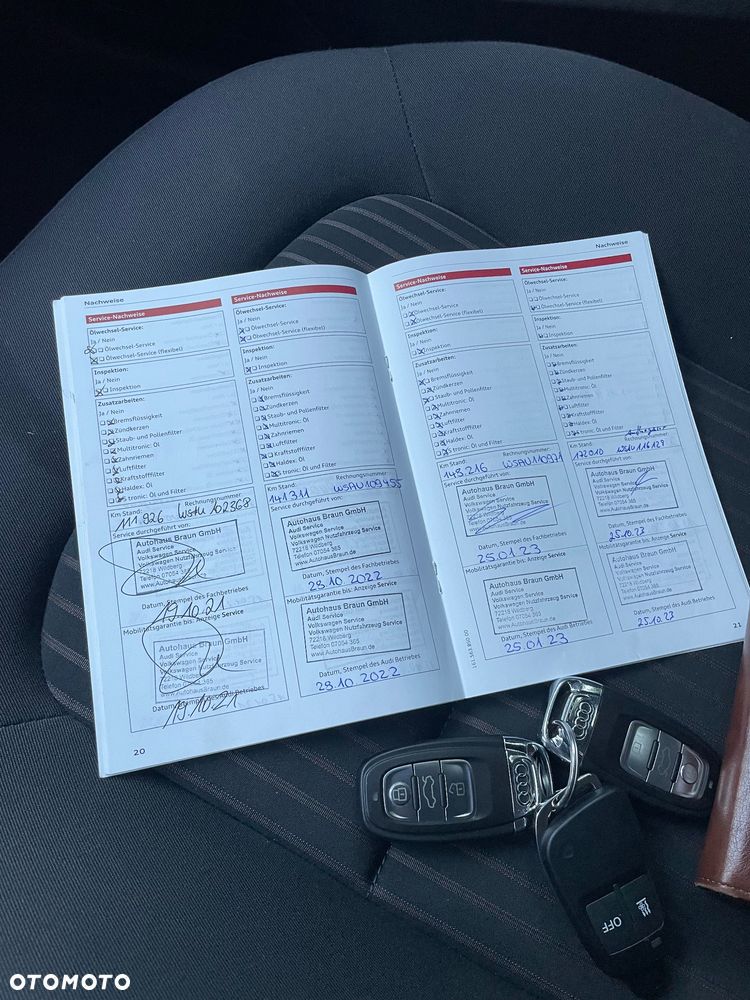 Nachweise
Service-Nachweise
Ölwechsel-Service:
Ja / Nein
Ölwechsel-Service
Ölwechsel-Service (flexibel)
Inspektion:
Ja / Nein
Inspektion
Zusatzarbeiten:
Ja / Nein
Bremsflüssigkeit
Zündkerzen
Staub- und Pollenfilter
Multitronic: Öl
Zahnriemen
Luftfilter
Kraftstofffilter
Haldex: Öl
S tronic: Öl und Filter
Km Stand: Rechnungsnummer:
111.926 WSAU 102368
Service durchgeführt von:
Autohaus Braun GmbH
Audi Service
Volkswagen Service
Volkswagen Nutzfahrzeug Service
72218 Wildberg
Telefon 07054 365
www.AutohausBraun.de
Datum, Stempel des Fachbetriebes
19.10.21
Mobilitätsgarantie bis: Anzeige Service
Autohaus Braun GmbH
Audi Service
Volkswagen Service
Volkswagen Nutzfahrzeug Service
72218 Wildberg
Telefon 07054 365
www.AutohausBraun.de
Datum, Stempel des Audi Betriebes
19.10.21
20
Service-Nachweise
Ölwechsel-Service:
Ja / Nein
Ölwechsel-Service
Ölwechsel-Service (flexibel)
Inspektion:
Ja / Nein
Inspektion
Zusatzarbeiten:
Ja / Nein
Bremsflüssigkeit
Zündkerzen
Staub- und Pollenfilter
Multitronic: Öl
Zahnriemen
Luftfilter
Kraftstofffilter
Haldex: Öl
S tronic: Öl und Filter
Km Stand: Rechnungsnummer:
141.311 WSAU109455
Service durchgeführt von:
Autohaus Braun GmbH
Audi Service
Volkswagen Service
Volkswagen Nutzfahrzeug Service
72218 Wildberg
Telefon 07054 365
www.AutohausBraun.de
Datum, Stempel des Fachbetriebes
29.10.2022
Mobilitätsgarantie bis: Anzeige Service
Autohaus Braun GmbH
Audi Service
Volkswagen Service
Volkswagen Nutzfahrzeug Service
72218 Wildberg
Telefon 07054 365
www.AutohausBraun.de
Datum, Stempel des Audi Betriebes
29.10.2022
Nachweise
Service-Nachweise
Ölwechsel-Service:
Ja / Nein
Ölwechsel-Service
Ölwechsel-Service (flexibel)
Inspektion:
Ja / Nein
Inspektion
Zusatzarbeiten:
Ja / Nein
Bremsflüssigkeit
Zündkerzen
Staub- und Pollenfilter
Multitronic: Öl
Zahnriemen
Luftfilter
Kraftstofffilter
Haldex: Öl
S tronic: Öl und Filter
Km Stand: Rechnungsnummer:
145.216 WSAU110971
Service durchgeführt von:
Autohaus Braun GmbH
Audi Service
Volkswagen Service
Volkswagen Nutzfahrzeug Service
72218 Wildberg
Telefon 07054 365
www.AutohausBraun.de
Datum, Stempel des Fachbetriebes
25.01.23
Mobilitätsgarantie bis: Anzeige Service
Autohaus Braun GmbH
Audi Service
Volkswagen Service
Volkswagen Nutzfahrzeug Service
72218 Wildberg
Telefon 07054 365
www.AutohausBraun.de
Datum, Stempel des Audi Betriebes
25.01.23
Service-Nachweise
Ölwechsel-Service:
Ja / Nein
Ölwechsel-Service
Ölwechsel-Service (flexibel)
Inspektion:
Ja / Nein
Inspektion
Zusatzarbeiten:
Ja / Nein
Bremsflüssigkeit
Zündkerzen
Staub- und Pollenfilter
Multitronic: Öl
Zahnriemen
Luftfilter
Kraftstofffilter
Haldex: Öl
S tronic: Öl und Filter
Km Stand: Rechnungsnummer:
172010
Service durchgeführt von:
Autohaus Braun GmbH
Audi Service
Volkswagen Service
Volkswagen Nutzfahrzeug Service
72218 Wildberg
Telefon 07054 365
www.AutohausBraun.de
Datum, Stempel des Fachbetriebes
25.10.23
Mobilitätsgarantie bis: Anzeige Service
Autohaus Braun GmbH
Audi Service
Volkswagen Service
Volkswagen Nutzfahrzeug Service
72218 Wildberg
Telefon 07054 365
www.AutohausBraun.de
Datum, Stempel des Audi Betriebes
25.10.23
21
OFF
OTOMOTO